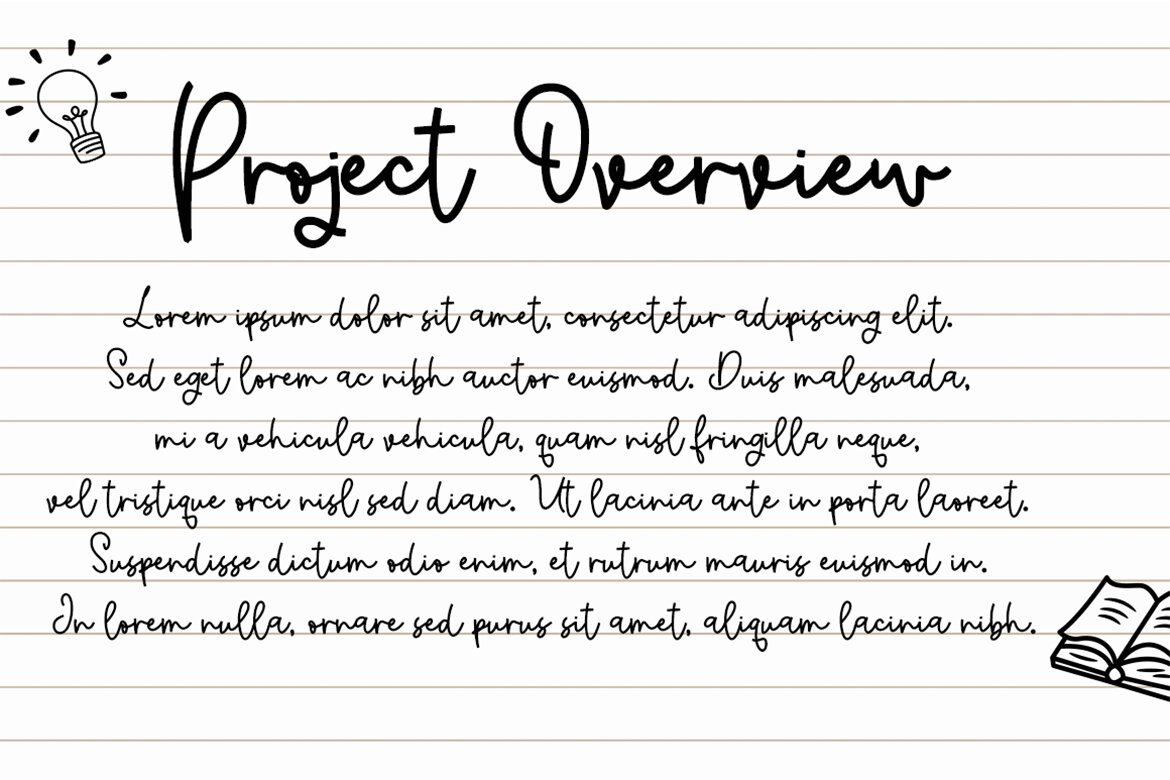 Project Overview
Lorem ipsum dolor sit amet, consectetur adipiscing elit.
Sed eget lorem ac nibh auctor euismod. Duis malesuada,
mi a vehicula vehicula, quam nisl fringilla neque,
vel tristique orci nisl sed diam. Ut lacinia ante in porta laoreet.
Suspendisse dictum odio enim, et rutrum mauris euismod in.
In lorem nulla, ornare sed purus sit amet, aliquam lacinia nibh.